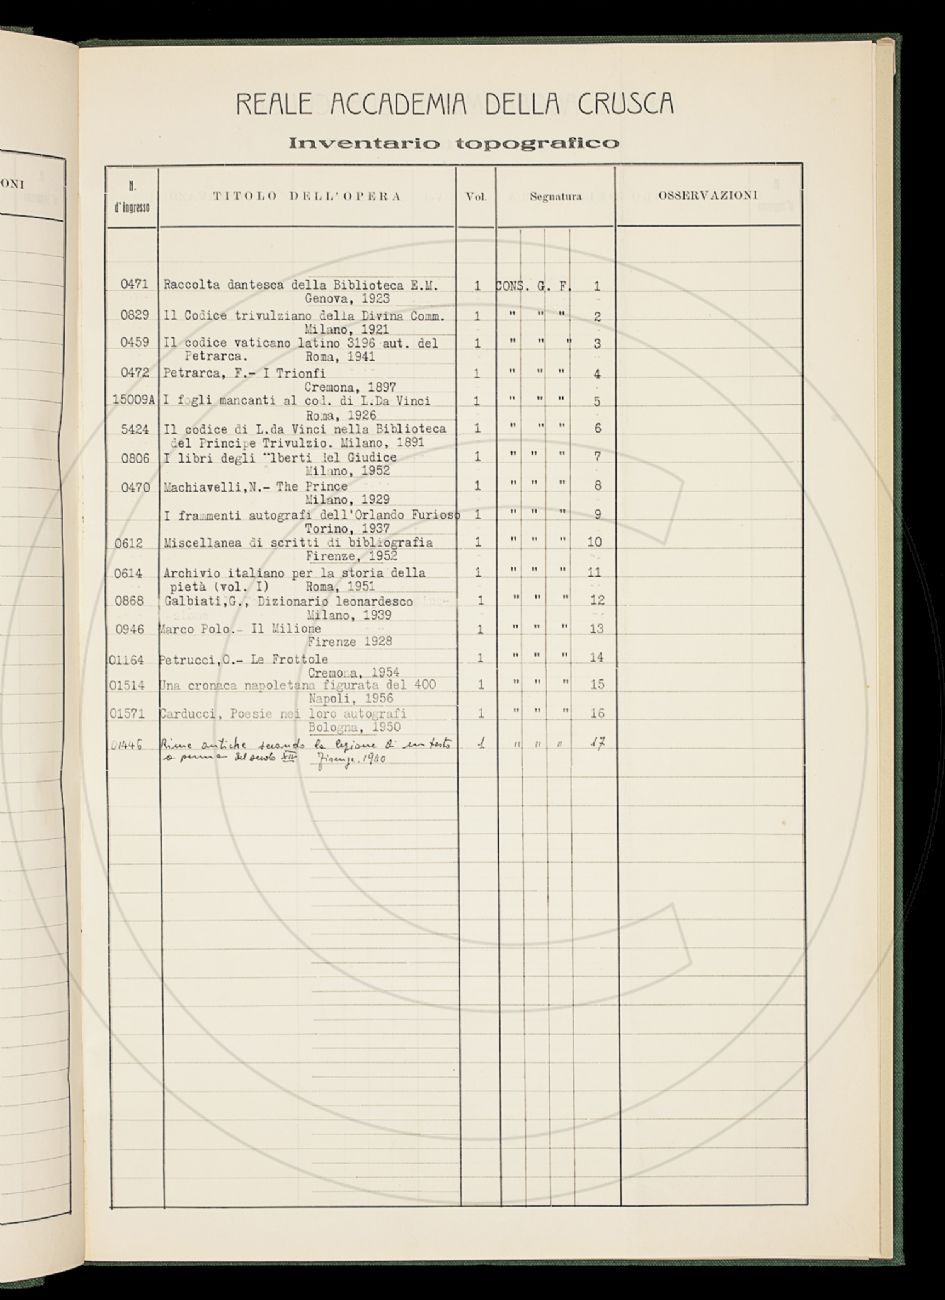 ONI
REALE ACCADEMIA DELLA CRUSCA
Inventario topografico
N. d'ingresso TITOLO DELL'OPERA Vol. Segnatura OSSERVAZIONI
0471 Raccolta dantesca della Biblioteca E.M. 1 CONS. G. F. 1
Genova, 1923
0829 Il Codice trivulziano della Divina Comm. 1 " " " 2
Milano, 1921
0459 Il codice vaticano latino 3196 aut. del 1 " " " 3
Petrarca. Roma, 1941
0472 Petrarca, F.- I Trionfi 1 " " " 4
Cremona, 1897
15009A I fogli mancanti al cod. di L.Da Vinci 1 " " " 5
Roma, 1926
5424 Il codice di L.da Vinci nella Biblioteca 1 " " " 6
del Principe Trivulzio. Milano, 1891
0806 I libri degli "lberti del Giudice 1 " " " 7
Milano, 1952
0470 Machiavelli,N.- The Prince 1 " " " 8
Milano, 1929
I frammenti autografi dell'Orlando Furioso 1 " " " 9
Torino, 1937
0612 Miscellanea di scritti di bibliografia 1 " " " 10
Firenze, 1952
0614 Archivio italiano per la storia della 1 " " " 11
pietà (vol. I) Roma, 1951
0868 Galbiati,G., Dizionario leonardesco 1 " " " 12
Milano, 1939
0946 Marco Polo.- Il Milione 1 " " " 13
Firenze 1928
01164 Petrucci,O.- Le Frottole 1 " " " 14
Cremona, 1954
01514 Una cronaca napoletana figurata del 400 1 " " " 15
Napoli, 1956
01571 Carducci, Poesie nei loro autografi 1 " " " 16
Bologna, 1950
01446 Rime antiche secondo la lezione di un testo 1 " " " 17
a penna del secolo XIII Firenze, 1900